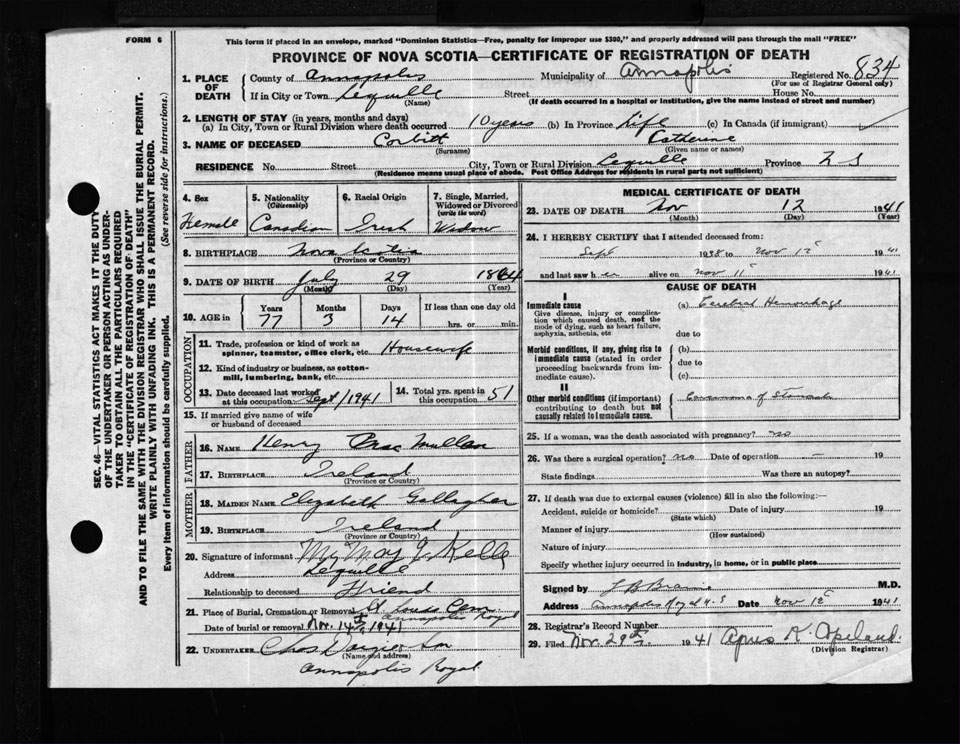 FORM 6
This form if placed in an envelope, marked "Dominion Statistics—Free, penalty for improper use $300," and properly addressed will pass through the mail "FREE"
PROVINCE OF NOVA SCOTIA—CERTIFICATE OF REGISTRATION OF DEATH
1. PLACE OF DEATH County of Annapolis Municipality of Annapolis Registered No. 834
(For use of Registrar General only)
If in City or Town Lequille Street House No.
(Name) (If death occurred in a hospital or institution, give the name instead of street and number)
2. LENGTH OF STAY (in years, months and days)
(a) In City, Town or Rural Division where death occurred 10 years (b) In Province Life (c) In Canada (if immigrant)
3. NAME OF DECEASED Corbitt Catherine
(Surname) (Given name or names)
RESIDENCE No. Street City, Town or Rural Division Lequille Province N S
(Residence means usual place of abode. Post Office Address for residents in rural parts not sufficient)
4. Sex 5. Nationality (Citizenship) 6. Racial Origin 7. Single, Married, Widowed or Divorced (write the word)
Female Canadian Irish Widow
8. BIRTHPLACE Nova Scotia
(Province or Country)
9. DATE OF BIRTH July 29 1864
(Month) (Day) (Year)
10. AGE in Years Months Days If less than one day old
77 3 14 hrs. or min.
OCCUPATION
11. Trade, profession or kind of work as spinner, teamster, office clerk, etc. Housewife
12. Kind of industry or business, as cotton-mill, lumbering, bank, etc.
13. Date deceased last worked at this occupation Sept/1941 14. Total yrs. spent in this occupation 51
15. If married give name of wife or husband of deceased
FATHER
16. NAME Henry Mac Mullan
17. BIRTHPLACE Ireland
(Province or Country)
MOTHER
18. MAIDEN NAME Elizabeth Gallagher
19. BIRTHPLACE Ireland
(Province or Country)
20. Signature of informant May J. Kelly
Address Lequille
Relationship to deceased Friend
21. Place of Burial, Cremation or Removal St Louis Cem Annapolis Royal
Date of burial or removal Nov. 14th, 1941
22. UNDERTAKER Chas
(Name and address)
Annapolis Royal
MEDICAL CERTIFICATE OF DEATH
23. DATE OF DEATH Nov 12 1941
(Month) (Day) (Year)
24. I HEREBY CERTIFY that I attended deceased from:
Sept 1938 to Nov 12 1941
and last saw her alive on Nov 11 1941
CAUSE OF DEATH
I
Immediate cause (a) Cerebral Hemorrhage
Give disease, injury or complication which caused death, not the mode of dying, such as heart failure, asphyxia, asthenia, etc
due to
Morbid conditions, if any, giving rise to immediate cause (stated in order proceeding backwards from immediate cause). (b)
due to
(c)
II
Other morbid conditions (if important) contributing to death but not causally related to immediate cause. Carcinoma of Stomach
25. If a woman, was the death associated with pregnancy? no
26. Was there a surgical operation? no Date of operation — 19
State findings Was there an autopsy?
27. If death was due to external causes (violence) fill in also the following:—
Accident, suicide or homicide? Date of injury 19
(State which)
Manner of injury
(How sustained)
Nature of injury
Specify whether injury occurred in industry, in home, or in public place
Signed by M.D.
Address Annapolis Royal N.S Date Nov 12 1941
28. Registrar's Record Number
29. Filed Nov. 29th. 1941 Agnes K. Copeland
(Division Registrar)
SEC. 46—VITAL STATISTICS ACT MAKES IT THE DUTY
OF THE UNDERTAKER OR PERSON ACTING AS UNDER-
TAKER TO OBTAIN ALL THE PARTICULARS REQUIRED
IN THE "CERTIFICATE OF REGISTRATION OF DEATH"
AND TO FILE THE SAME WITH THE DIVISION REGISTRAR WHO SHALL ISSUE THE BURIAL PERMIT.
WRITE PLAINLY WITH UNFADING INK. THIS IS A PERMANENT RECORD.
Every item of information should be carefully supplied. (See reverse side for instructions.)